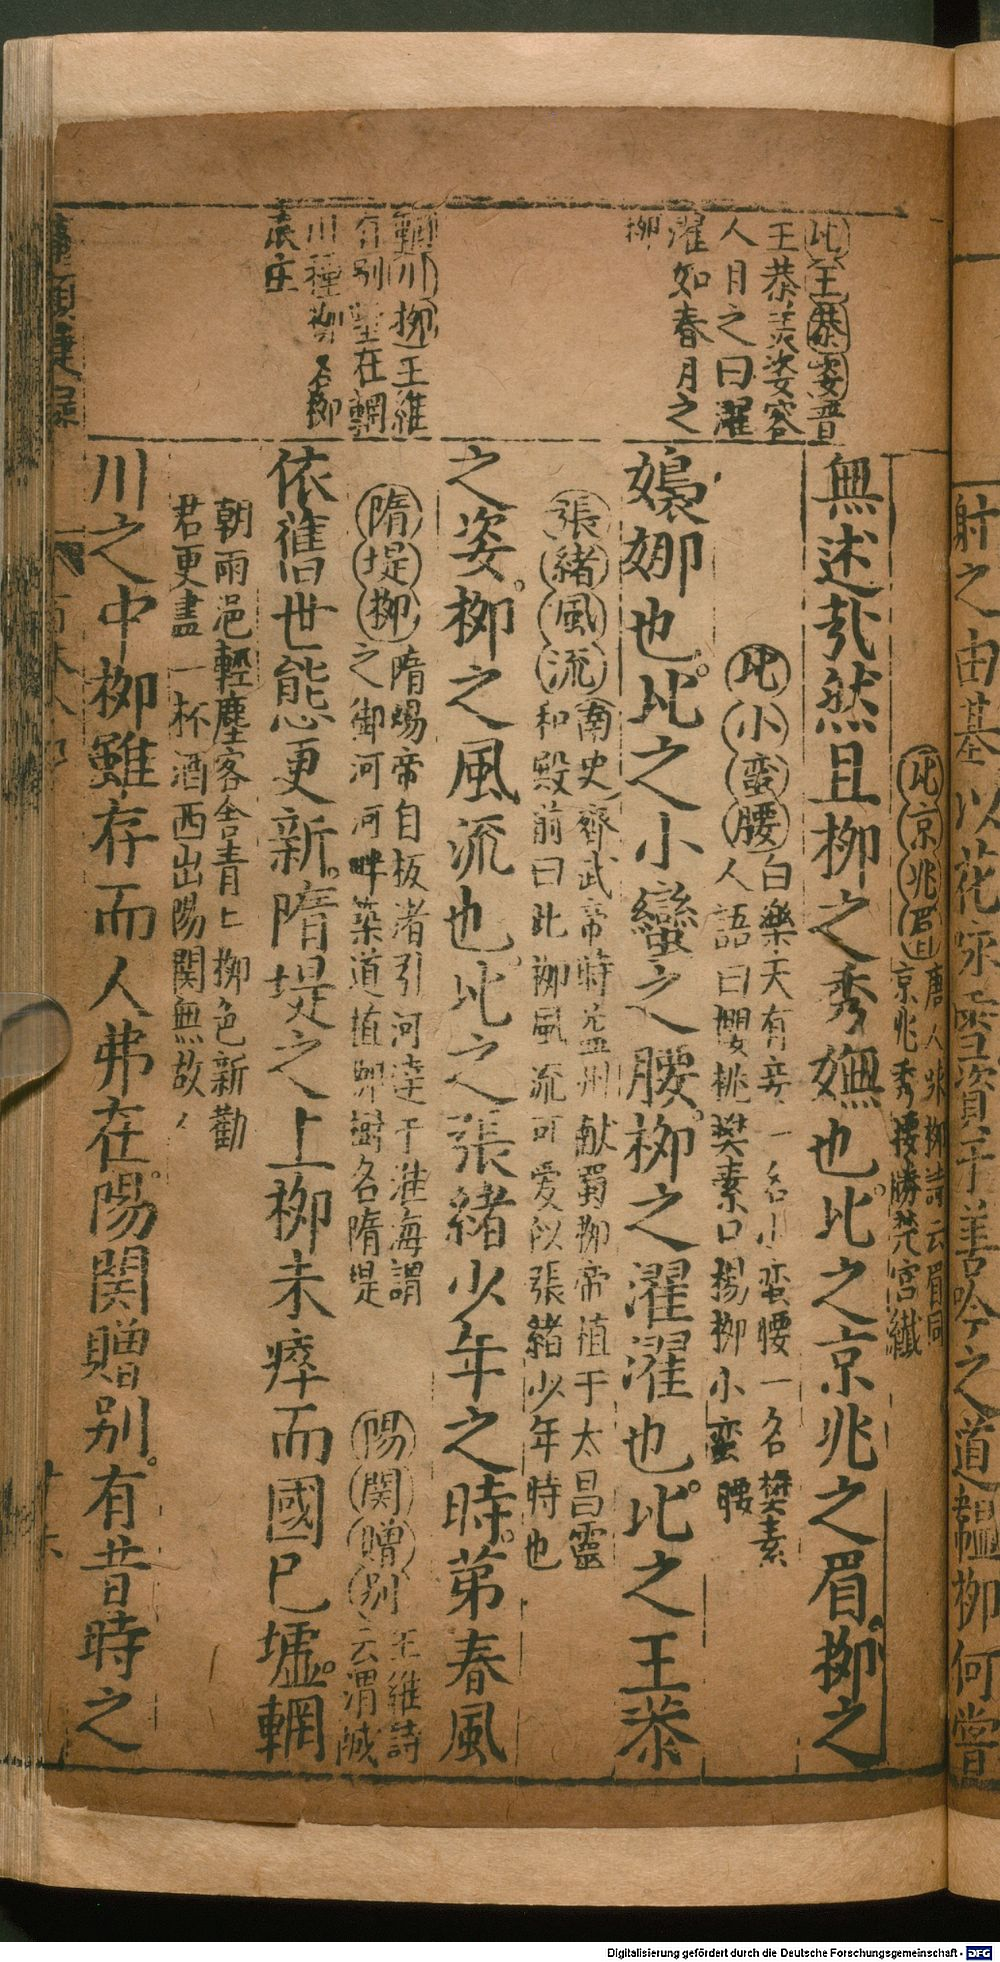 射之由基以花咏雪資于善吟之道韞柳何嘗
比京兆眉 唐人咏柳詩云眉同
京兆秀腰勝楚宮纖
無述哉然且柳之秀嫵也比之京兆之眉柳之
比小蛮腰 白樂天有妾一名小蛮腰一名樊素
人語曰櫻桃樊素口楊柳小蛮腰
嬝娜也比之小蠻之腰柳之濯濯也比之王恭
張緒風流 南史齊武帝時益州献蜀柳帝植于太昌靈
和殿前曰此柳風流可愛似張緒少年時也
之姿柳之風流也比之張緒少年之時苐春風
隋堤柳 隋煬帝自板渚引河達于淮海謂
之御河河畔築道植柳樹名隋堤
陽関贈别 王維詩
云渭城
依舊世態更新隋堤之上柳未瘁而國已墟輞
朝雨浥輕塵客舍青上柳色新勸
君更盡一杯酒西出陽関無故人
川之中柳雖存而人弗在陽関贈别有昔時之
比王恭姿晋
王恭美姿容
人月之曰濯
濯如春月之
柳
輞川柳王維
有别墅在輞
川種柳名柳
浪庄